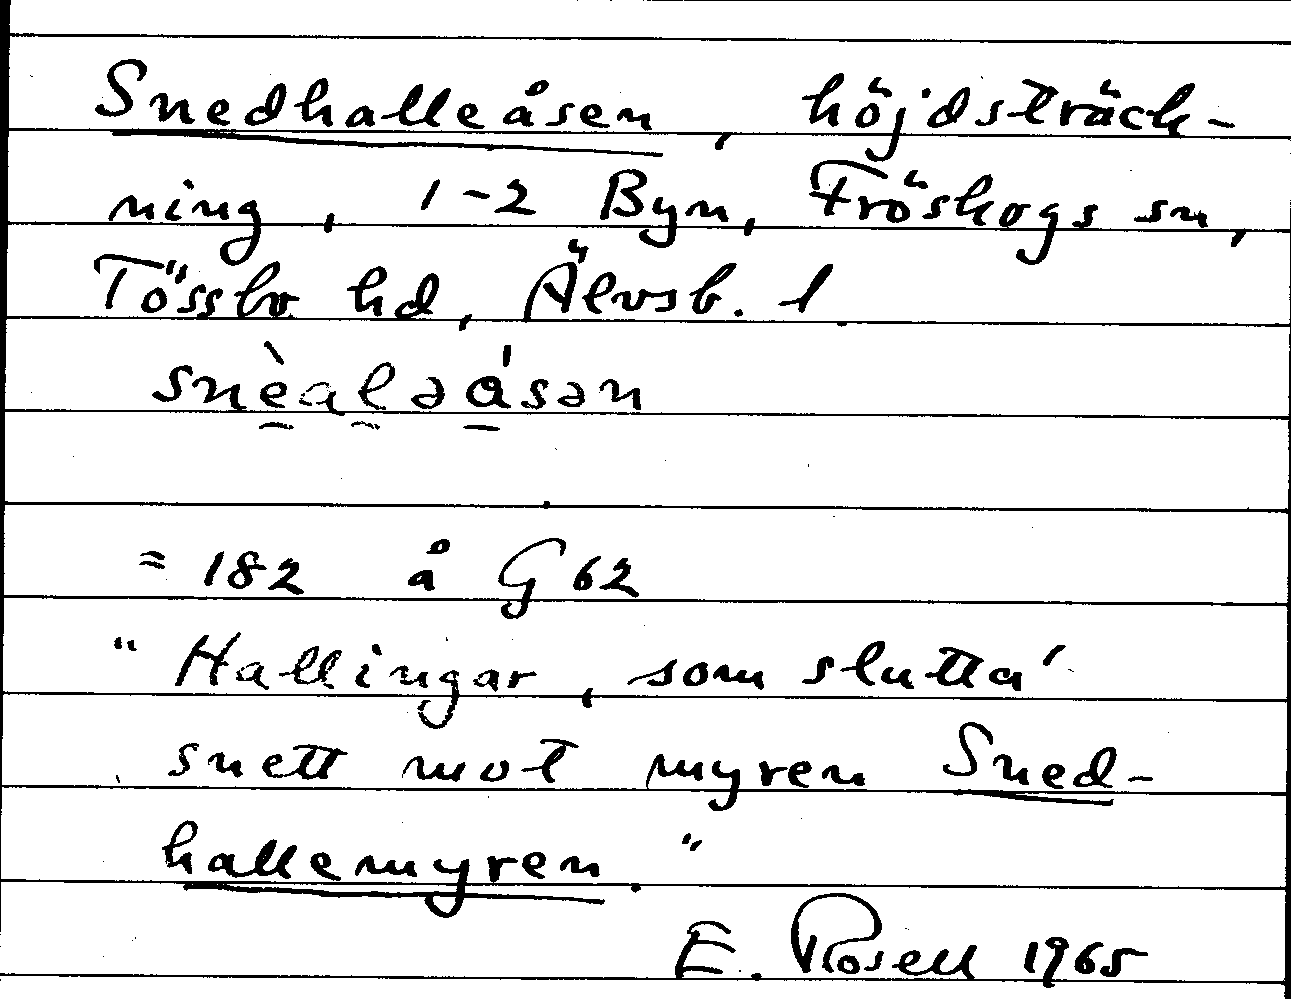 Snedhalleåsen, höjdsträck-
ning, 1-2 Byn, Fröskogs sn,
Tössbo hd, Älvsb. l.
snèaləåˈsən
= 182 å G 62
"Hallingar, som slutta'
snett mot myren Sned-
hallemyren."
E. Rosell 1965